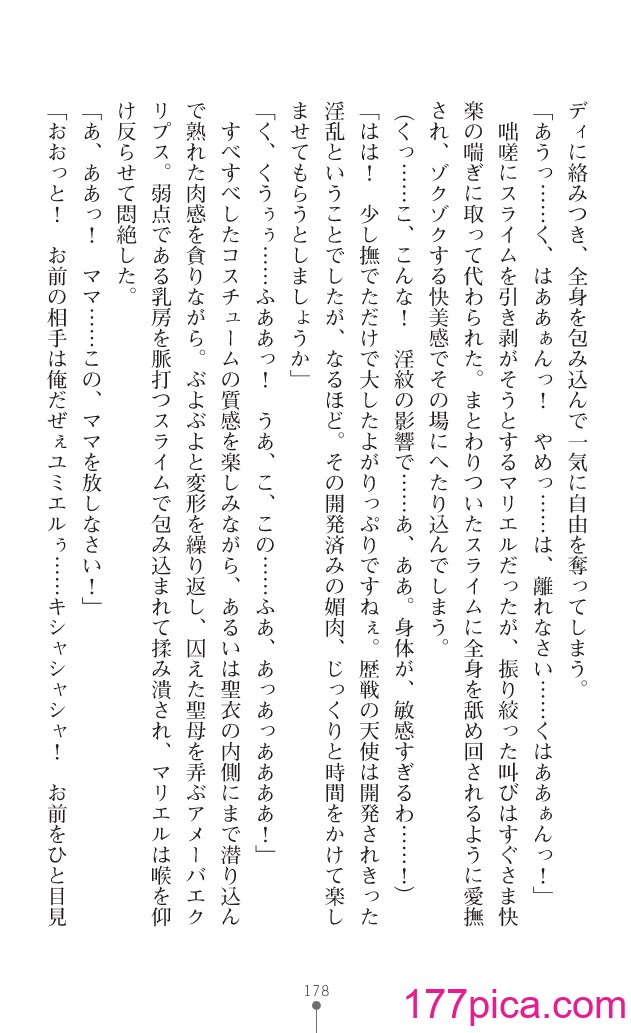 ディに絡みつき、全身を包み込んで一気に自由を奪ってしまう。
「あうっ……く、はああぁんっ！　やめっ……は、離れなさい……くはああぁんっ！」
　咄嗟にスライムを引き剥がそうとするマリエルだったが、振り絞った叫びはすぐさま快
楽の喘ぎに取って代わられた。まとわりついたスライムに全身を舐め回されるように愛撫
され、ゾクゾクする快美感でその場にへたり込んでしまう。
（くっ……こ、こんな！　淫紋の影響で……あ、ああ。身体が、敏感すぎるわ……！）
「はは！　少し撫でただけで大したよがりっぷりですねぇ。歴戦の天使は開発されきった
淫乱ということでしたが、なるほど。その開発済みの媚肉、じっくりと時間をかけて楽し
ませてもらうとしましょうか」
「く、くうぅぅ……ふああっ！　うあ、こ、この……ふあ、あっあっあああ！」
　すべすべしたコスチュームの質感を楽しみながら、あるいは聖衣の内側にまで潜り込ん
で熟れた肉感を貪りながら。ぶよぶよと変形を繰り返し、囚えた聖母を弄ぶアメーバエク
リプス。弱点である乳房を脈打つスライムで包み込まれて揉み潰され、マリエルは喉を仰
け反らせて悶絶した。
「あ、ああっ！　ママ……この、ママを放しなさい！」
「おおっと！　お前の相手は俺だぜぇユミエルぅ……キシャシャシャ！　お前をひと目見
178
177pica.com